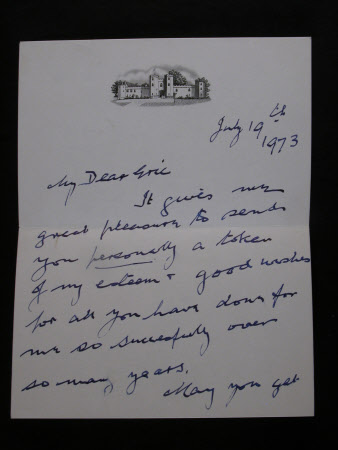 July 19th
1973
My Dear Eric
It gives me
great pleasure to send
you personally a token
of my esteem & good wishes
for all you have done for
me so succesfully over
so many years.
May you get